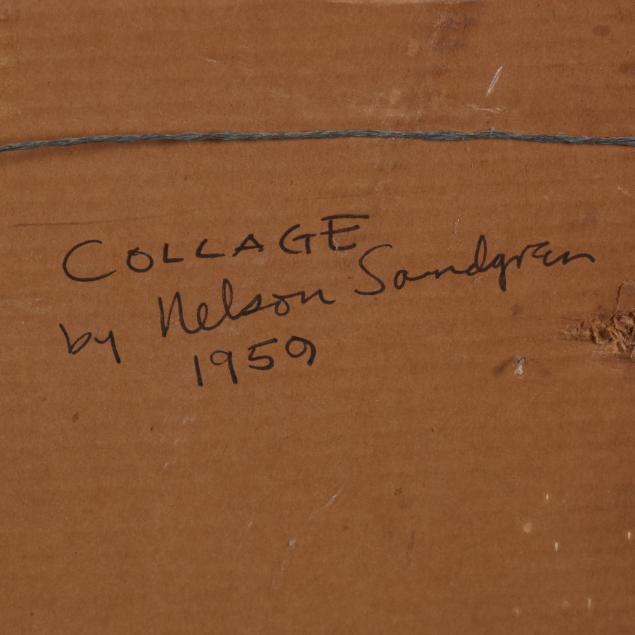 COLLAGE
by Nelson Sandgren
1959